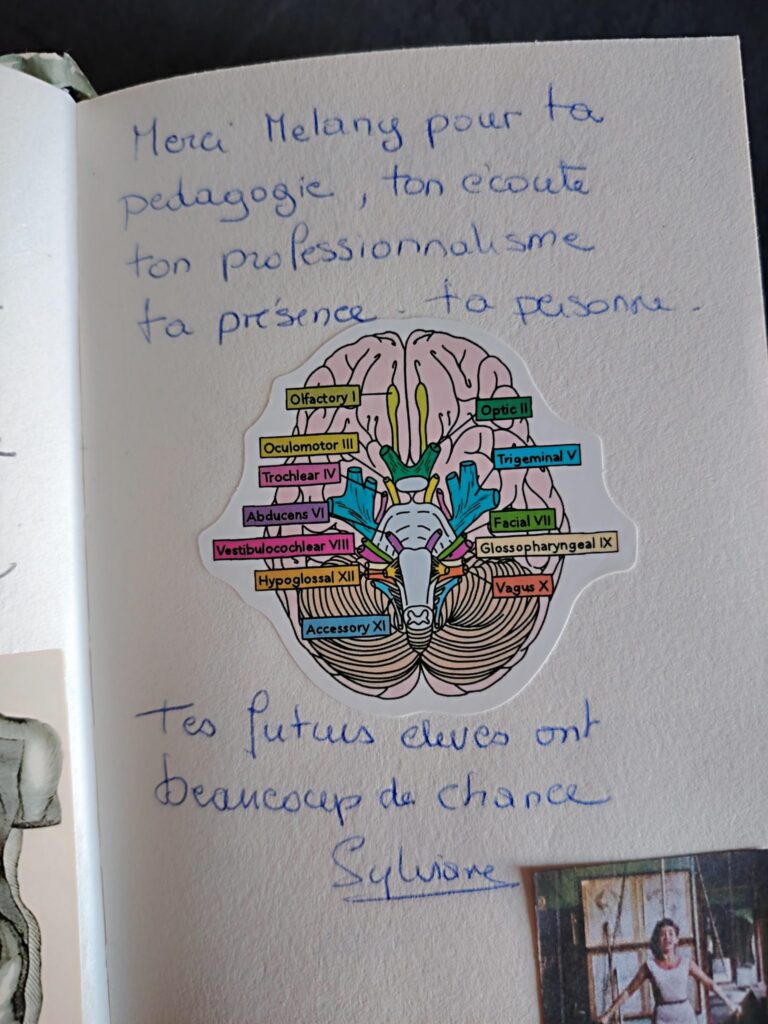 Merci Melany pour ta
pedagogie, ton écoute
ton professionnalisme
ta présence. ta personne.
Olfactory I
Optic II
Oculomotor III
Trigeminal V
Trochlear IV
Abducens VI
Facial VII
Vestibulocochlear VIII
Glossopharyngeal IX
Hypoglossal XII
Vagus X
Accessory XI
Tes futurs eleves ont
beaucoup de chance
Sylviane